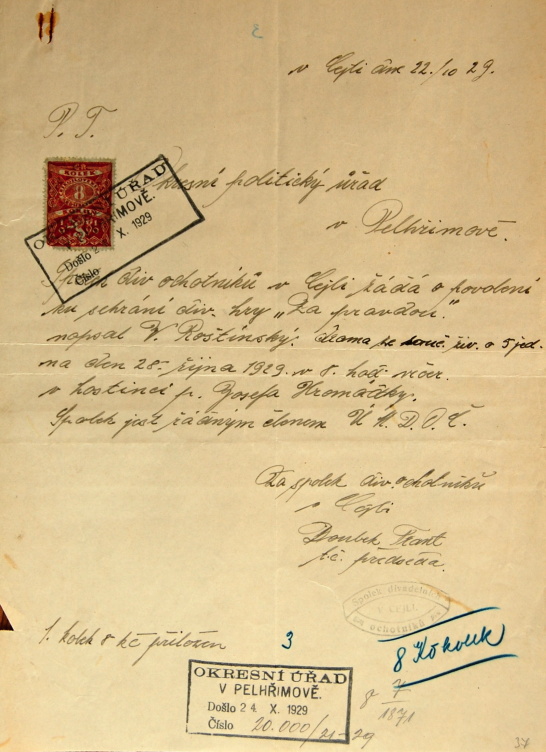 v Cejli dne 22./10 29.
P. T.
KOLEK
8
OKRESNÍ ÚŘAD
V PELHŘIMOVĚ.
Došlo 2 X. 1929
Číslo
Okresní politický úřad
v Pelhřimově.
Spolek div. ochotníků v Cejli žádá o povolení
ku sehrání div. hry „Za pravdou".
napsal V. Roštínský. drama ze souč. živ. o 5 jed.
na den 28. října 1929 v 8. hod. večer.
v hostinci p. Josefa Hromádky.
Spolek jest řádným členem Ú. M. D. O. Č.
Za spolek div. ochotníků
v Cejli
Doubek
t.č. předseda.
Spolek divadelních
ochotníků
1. kolek 8 kč přiložen
3
8 Kč kolek
OKRESNÍ ÚŘAD
V PELHŘIMOVĚ.
Došlo 24 X. 1929
Číslo 20.000/21-29
8 7
1871
37